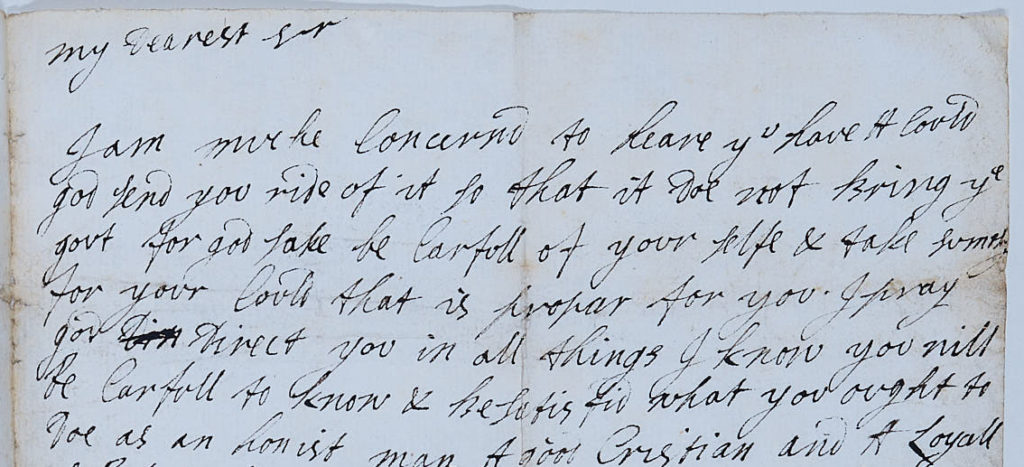 my Dearest sir
I am muche Concernd to heare yu have A Could
god send you ride of it so that it Doe not bring ye
gout for god sake be Carfull of your selfe & take
for your Could that is propar for you. I pray
god Din Direct you in all things I know you will
be Carfull to know & be Setisfid what you ought to
Doe as an honist man A good Cristian and A Loyall